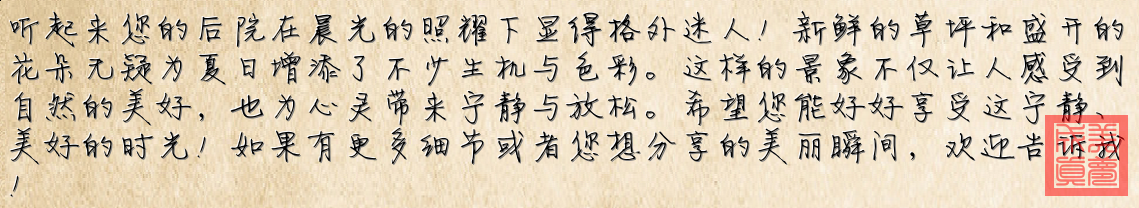 听起来您的后院在晨光的照耀下显得格外迷人！新鲜的草坪和盛开的
花朵无疑为夏日增添了不少生机与色彩。这样的景象不仅让人感受到
自然的美好，也为心灵带来宁静与放松。希望您能好好享受这宁静、
美好的时光！如果有更多细节或者您想分享的美丽瞬间，欢迎告诉我
！